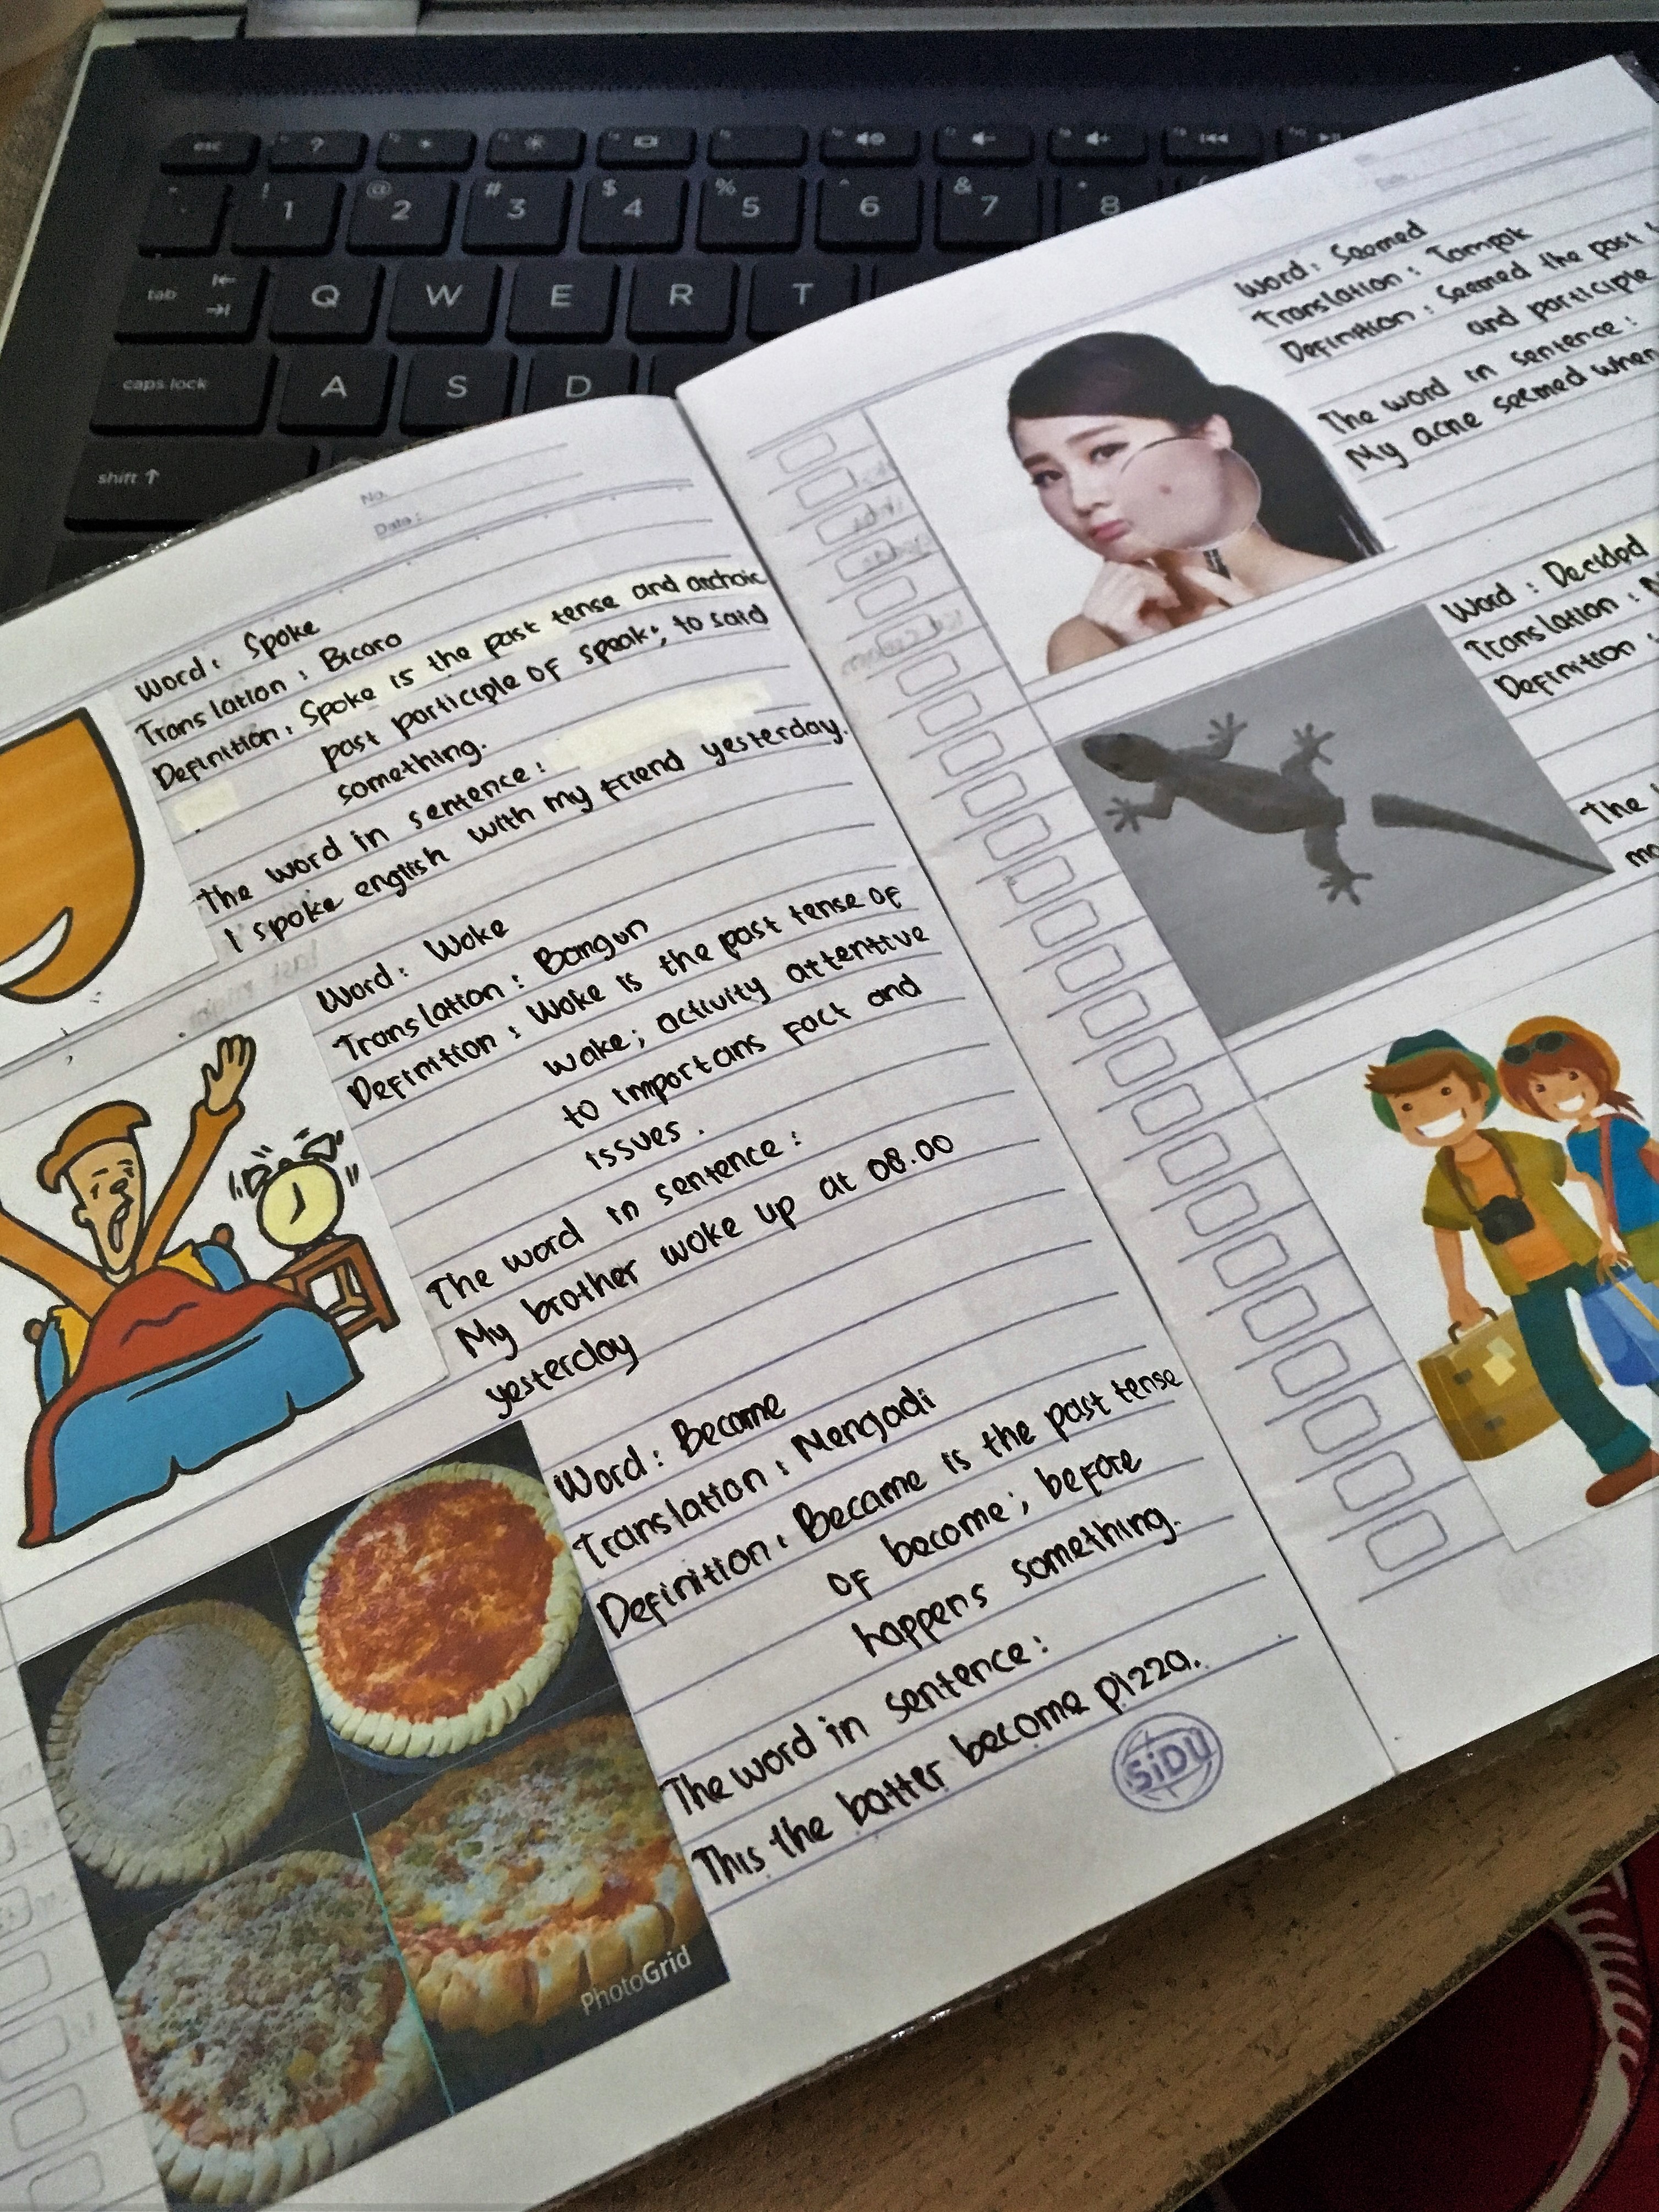 esc
?
! 1
@ 2
# 3
$ 4
% 5
^ 6
& 7
* 8
tab
Q W E R T
caps lock
A S D
shift
No.
Date:
Word: Spoke
Translation: Bicara
Definition: Spoke is the past tense and archaic
past participle of speak; to said
something.
The word in sentence:
I spoke english with my friend yesterday.
Word: Woke
Translation: Bangun
Definition: Woke is the past tense of
wake; activity attentive
to importans fact and
issues.
The word in sentence:
My brother woke up at 08.00
yesterday
Word: Became
Translation: Menjadi
Definition: Became is the past tense
of become; before
happens something.
The word in sentence:
This the batter became pizza.
SiDU
PhotoGrid
Word: Seemed
Translation: Tampak
Definition: Seemed the past
and participle
The word in sentence:
My acne seemed when
Word: Decided
Translation:
Definition:
The